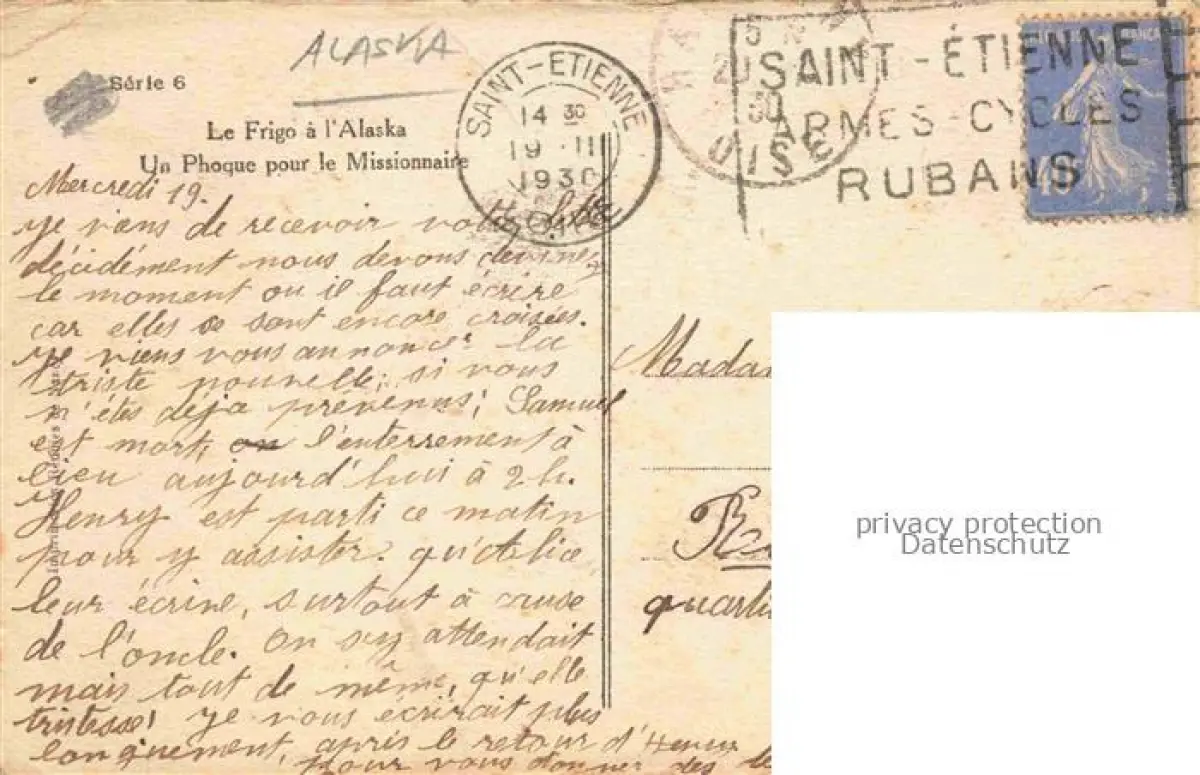 ALASKA
Série 6
Le Frigo à l'Alaska
Un Phoque pour le Missionnaire
SAINT-ETIENNE
14 30
19 II
1930
LOIRE
SAINT-ÉTIENNE
ARMES-CYCLES
RUBANS
OISE
Mercredi 19.
Je viens de recevoir votre lettre
décidément nous devons deviner
le moment ou il faut écrire
car elles se sont encore croisées.
Je viens vous annoncer la
triste nouvelle; si vous
n'êtes déja prévenus; Samuel
est mort, l'enterrement à
lieu aujourd'hui à 2h.
Henry est parti ce matin
pour y assister. qu'Alice
leur écrive, surtout à cause
de l'oncle. On s'y attendait
mais tout de même, qu'elle
tristesse! Je vous écrirait plus
longuement, après le retour d'Henry
pour vous donner des
Madam
quarti
privacy protection
Datenschutz